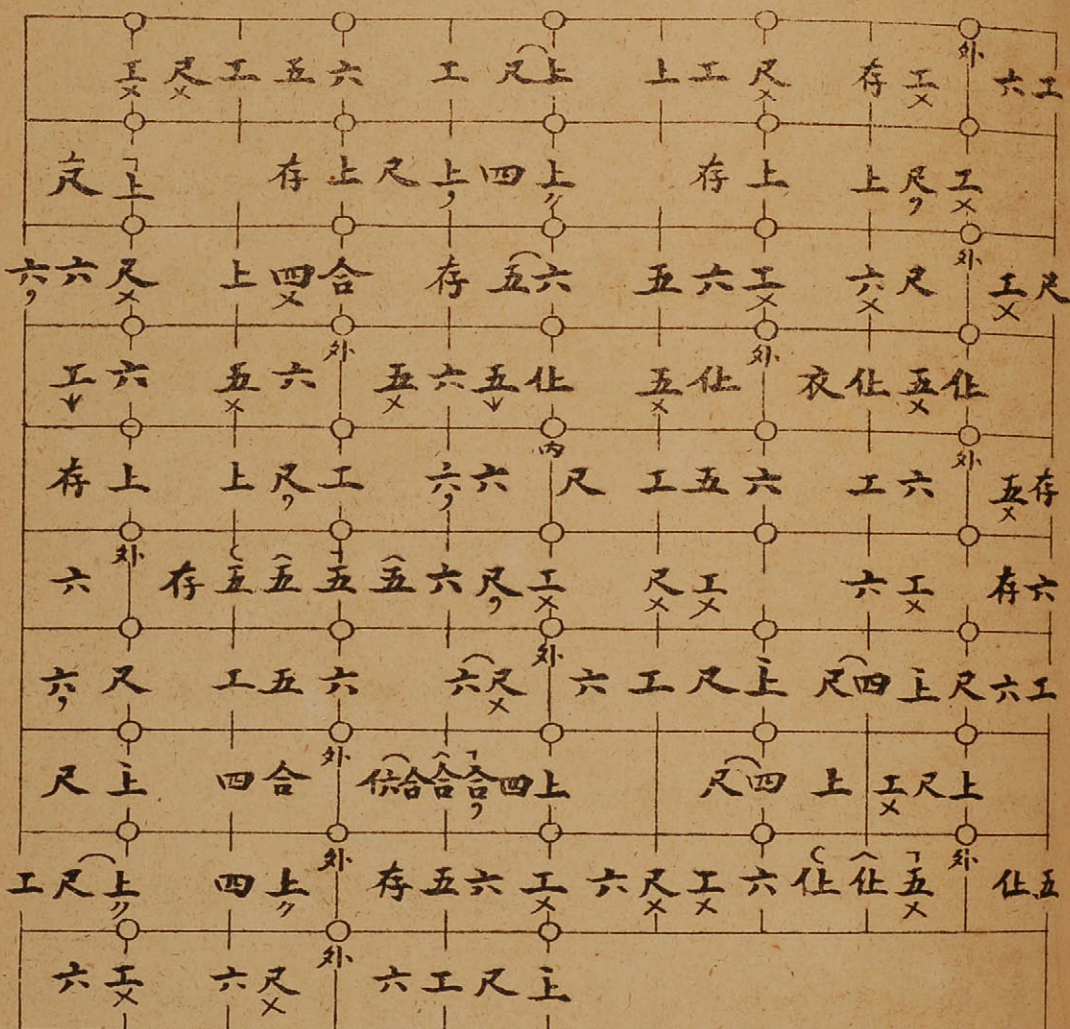 工 尺 工 五 六 工 尺 上 上 工 尺 存 工 外 六 工
尺 上 存 上 尺 上 四 上 存 上 上 尺 工
六 六 尺 上 四 合 存 五 六 五 六 工 六 尺 外 工 尺
工 六 五 六 外 五 六 五 仩 五 仩 外 衣 仩 五 仩
存 上 上 尺 工 六 六 內 尺 工 五 六 工 六 外 五 存
六 外 存 五 五 五 五 六 尺 工 尺 工 六 工 存 六
六 尺 工 五 六 六 尺 外 六 工 尺 上 尺 四 上 尺 六 工
尺 上 四 合 外 合 合 合 四 上 尺 四 上 工 尺 上
工 尺 上 四 上 外 存 五 六 工 六 尺 工 六 仩 仩 五 外 仩 五
六 工 六 尺 外 六 工 尺 上